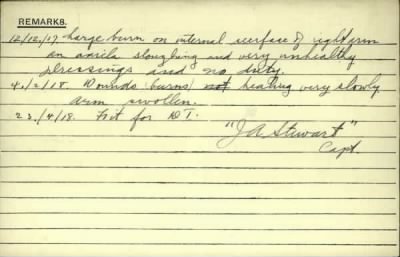 REMARKS.
12/12/17 Large burn on internal surface of right arm
an axila sloughing and very unhealthy
dressings and no duty.
4/2/18. Wounds (burns) not heating very slowly
arm swollen.
23/4/18. Fit for DT.
"J A Stewart"
Capt.